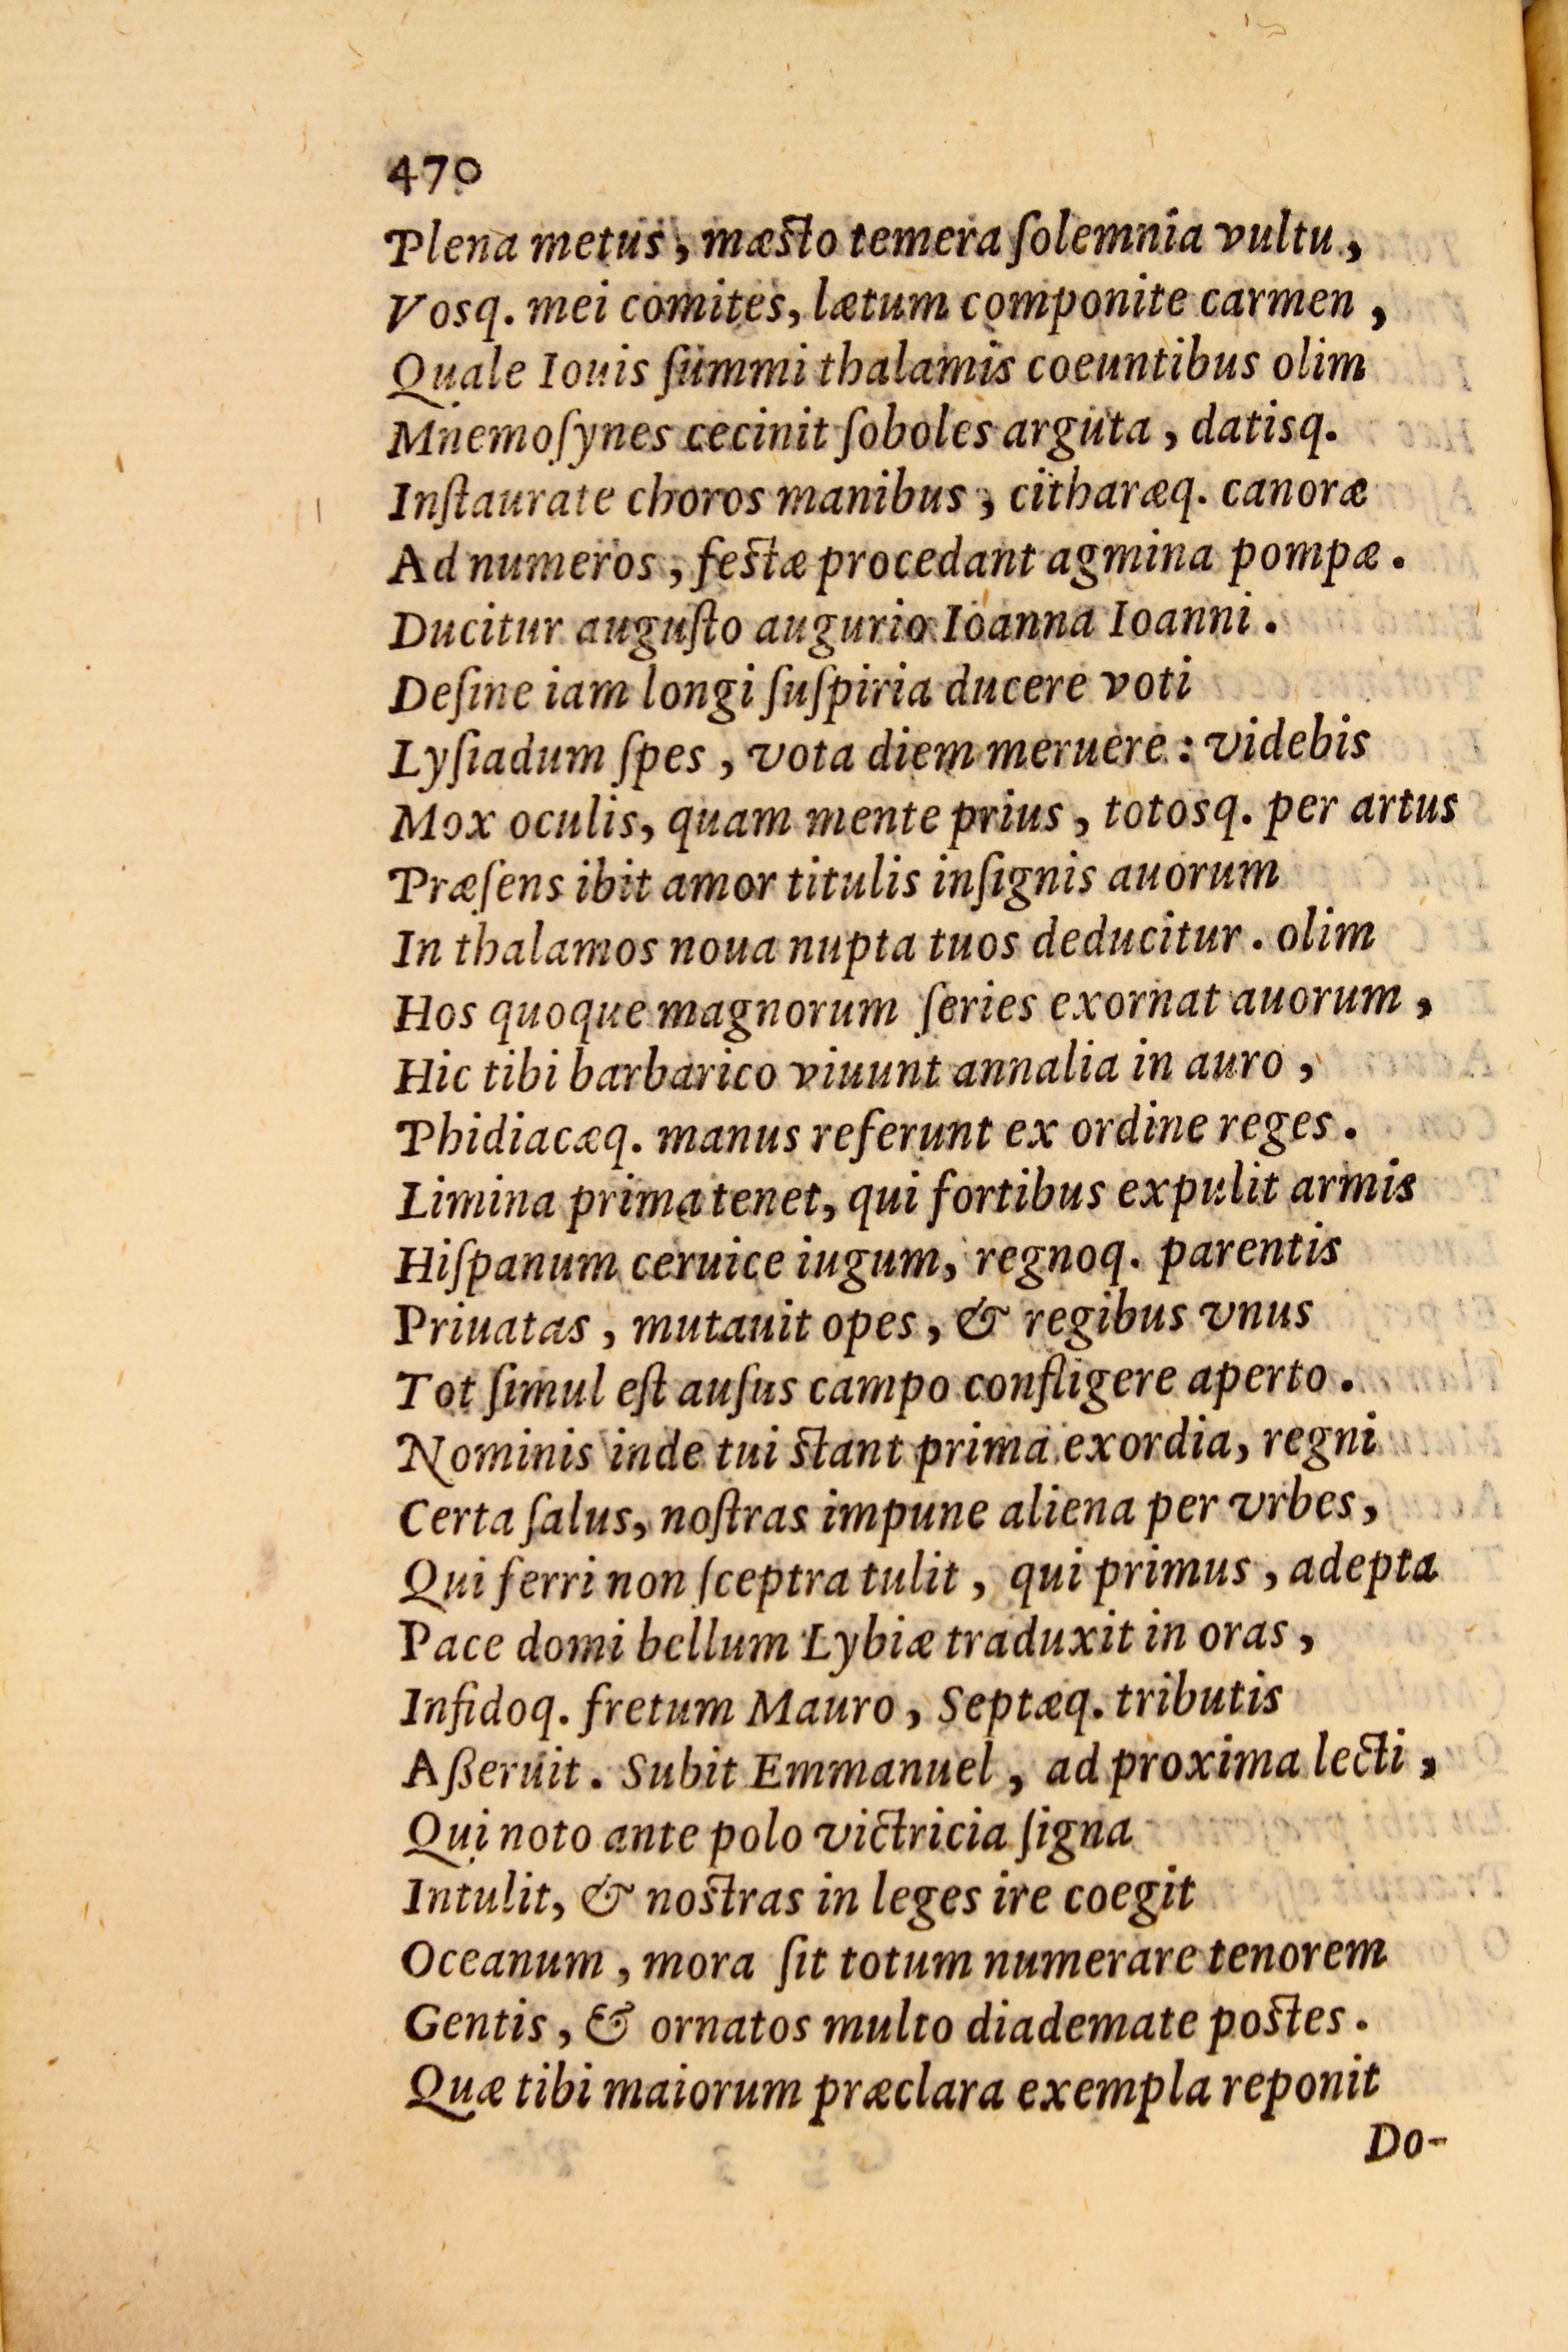 470
Plena metus, mæsto temera ſolemnia vultu,
Vosq. mei comites, lætum componite carmen,
Quale Iouis ſummi thalamis coeuntibus olim
Mnemoſynes cecinit ſoboles arguta, datisq.
Inſtaurate choros manibus, citharæq. canoræ
Ad numeros, festæ procedant agmina pompæ.
Ducitur auguſto augurio Ioanna Ioanni.
Deſine iam longi ſuſpiria ducere voti
Lyſiadum ſpes, vota diem meruere: videbis
Mox oculis, quam mente prius, totosq. per artus
Præſens ibit amor titulis inſignis auorum
In thalamos noua nupta tuos deducitur. olim
Hos quoque magnorum ſeries exornat auorum,
Hic tibi barbarico viuunt annalia in auro,
Phidiacæq. manus referunt ex ordine reges.
Limina prima tenet, qui fortibus expulit armis
Hiſpanum ceruice iugum, regnoq. parentis
Priuatas, mutauit opes, & regibus vnus
Tot ſimul eſt auſus campo confligere aperto.
Nominis inde tui stant prima exordia, regni
Certa ſalus, noſtras impune aliena per vrbes,
Qui ferri non ſceptra tulit, qui primus, adepta
Pace domi bellum Lybiæ traduxit in oras,
Infidoq. fretum Mauro, Septæq. tributis
Aßeruit. Subit Emmanuel, ad proxima lecti,
Qui noto ante polo victricia ſigna
Intulit, & nostras in leges ire coegit
Oceanum, mora ſit totum numerare tenorem
Gentis, & ornatos multo diademate postes.
Quæ tibi maiorum præclara exempla reponit
Do-